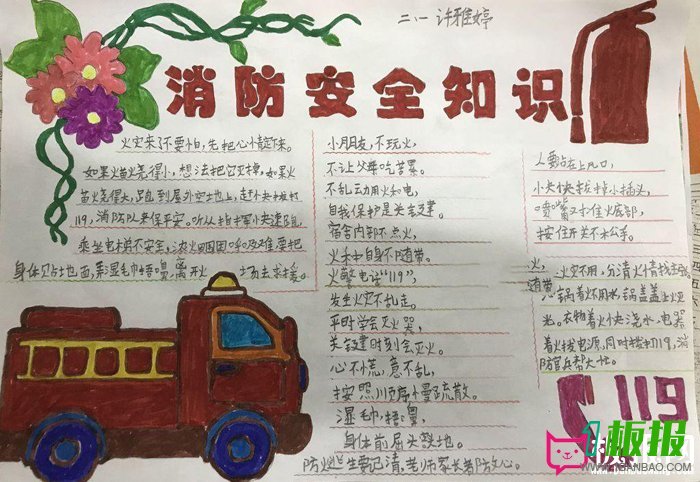 二.一 许雅婷
消防安全知识
火灾来了不要怕,先把心情定下来。
如果火苗烧得小,想法把它灭掉,如果火
苗烧得大,跑到屋外空地上,赶快拨打
119,消防队来保平安。听从指挥快速跑,
乘坐电梯不安全,浓火四围呼及难,要把
身体贝占地面,弄湿毛巾捂嘴鼻,离开火
小朋友,不玩火,
不让父母吃苦累。
不乱动用火和电,
自我保护是关键。
宿舍内部不点火,
火种自身不随带。
火警电话"119",
发生火灾不乱走。
平时学会灭火器,
关键时刻会灭火。
心不慌,意不乱,
按照顺序慢疏散。
湿毛巾,捂口鼻,
身体前屈头鼓地。
防火逃生要记清,老师家长者防文心。
人要站在上风口,
小夹快去掉小插头,
喷嘴又对准火底部,
按住开关不松手。
火,
随带
火灾不用,分清火情找主
锅着火不用水,锅盖盖上火熄
光。衣物着火快浇水,电器
着火拔电源,同时拨打119,消
防官兵帮大忙。
119
板报
WWW.1BANBAO.COM